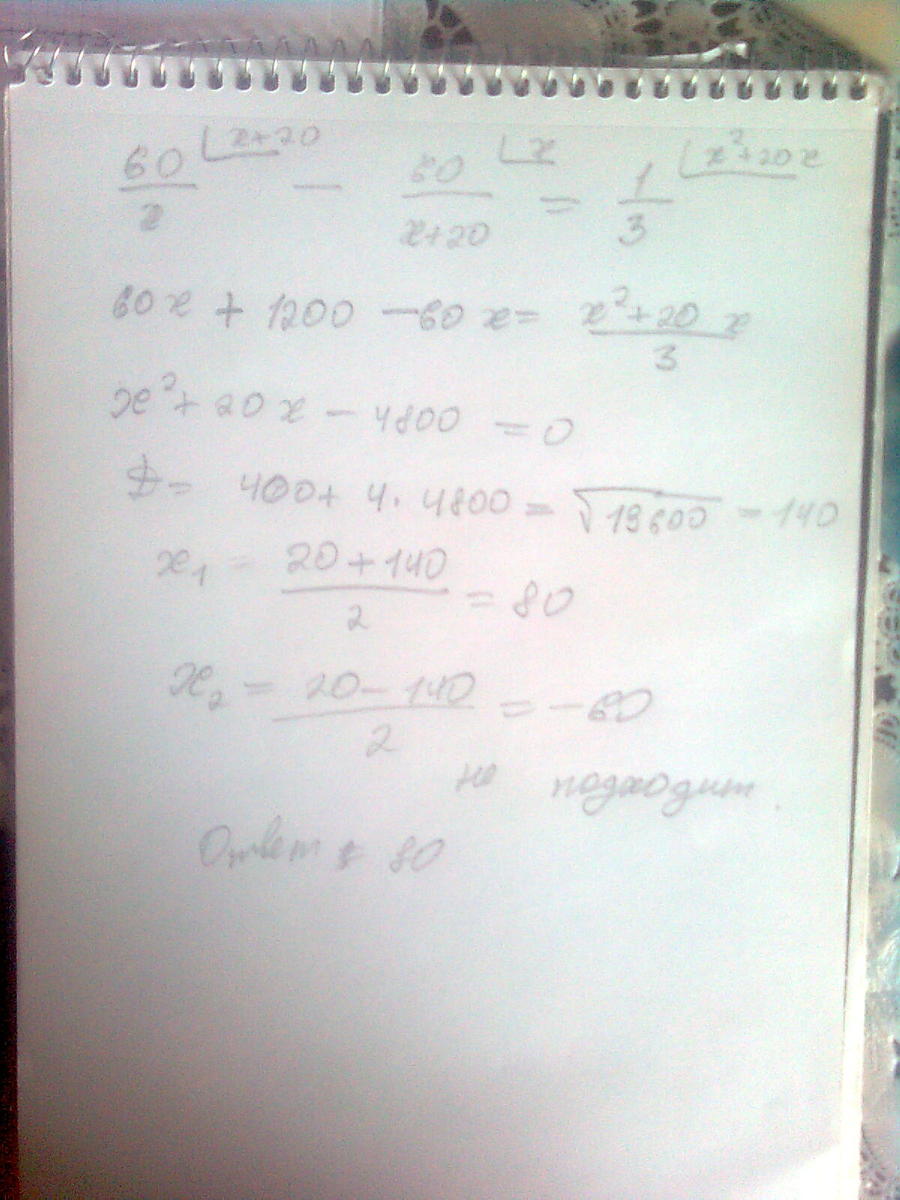 60/x ⌊x+20 − 60/(x+20) ⌊x = 1/3 ⌊x²+20x
60x + 1200 − 60x = (x²+20x)/3
x² + 20x − 4800 = 0
D = 400 + 4·4800 = √19600 = 140
x₁ = (20+140)/2 = 80
x₂ = (20−140)/2 = −60
не подходит.
Ответ: 80